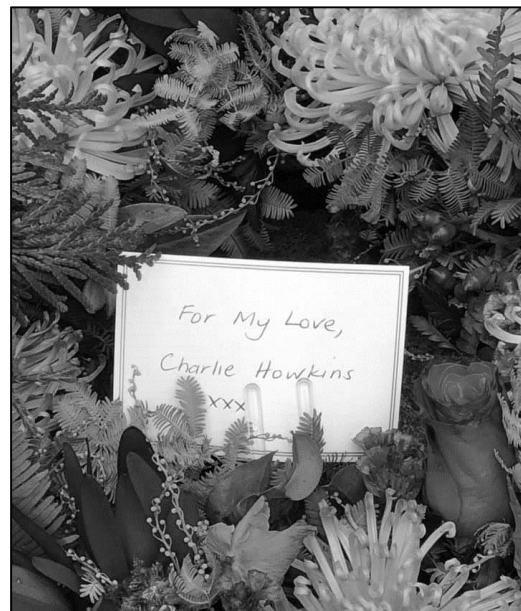 For My Love,
Charlie Howkins
xxx